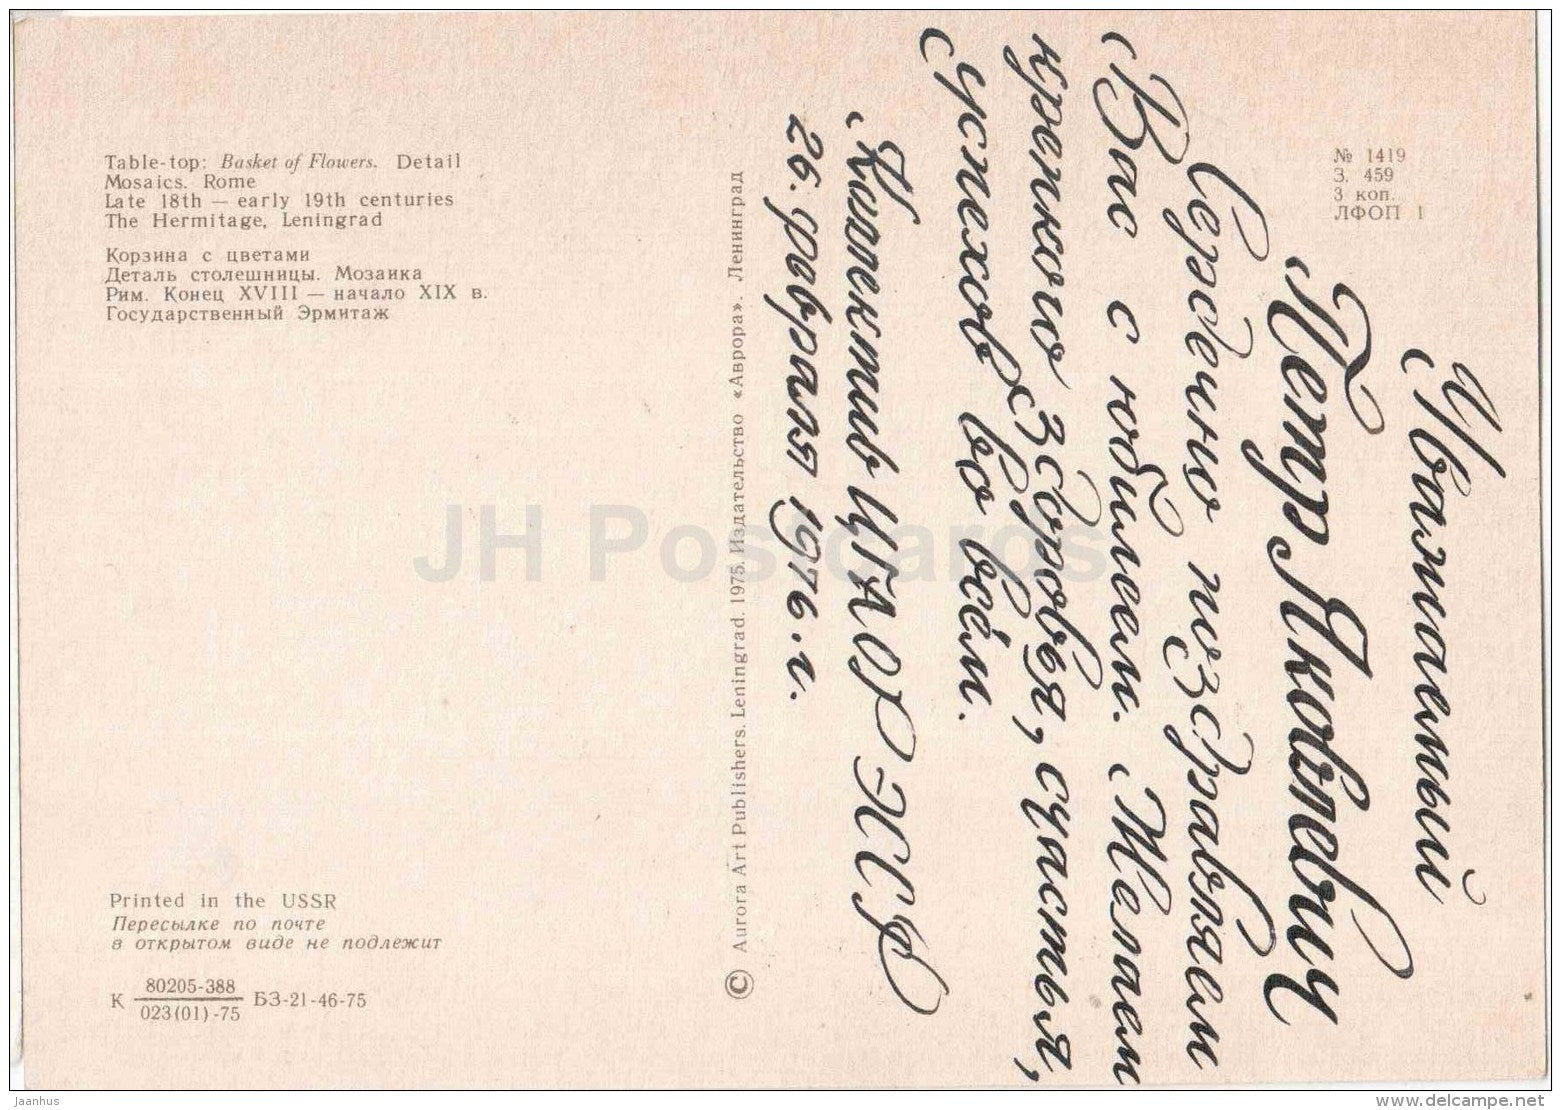 Table-top: Basket of Flowers. Detail
Mosaics. Rome
Late 18th — early 19th centuries
The Hermitage, Leningrad
Корзина с цветами
Деталь столешницы. Мозаика
Рим. Конец XVIII — начало XIX в.
Государственный Эрмитаж
Printed in the USSR
Пересылке по почте
в открытом виде не подлежит
К 80205-388 БЗ-21-46-75
023(01)-75
© Aurora Art Publishers. Leningrad. 1975. Издательство «Аврора». Ленинград
№ 1419
З. 459
3 коп.
ЛФОП 1
Уважаемый
Петр Яковлевич
Сердечно поздравляем
Вас с юбилеем. Желаем
крепкого здоровья, счастья,
успехов во всём.
Коллектив ЦГАОР ЭССР
26. февраля 1976. г.
JH Postcards
Jaanhus
delcampe.net